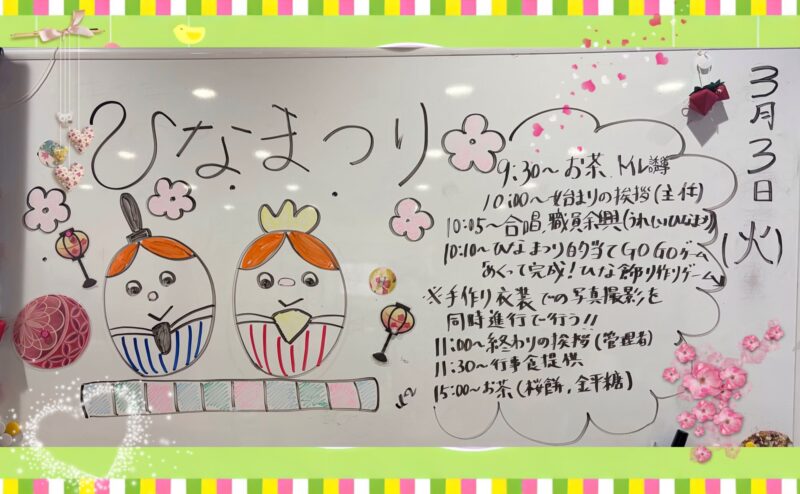 ひなまつり
3月3日(火)
9:30～お茶、トイレ誘導
10:00～始まりの挨拶(主任)
10:05～合唱、職員余興(うれしいひなまつり)
10:10～ひなまつり的当てGOGOゲーム
めくって完成!ひな飾り作りゲーム
※手作り衣装での写真撮影を
同時進行で行う!!
11:00～終わりの挨拶(管理者)
11:30～行事食提供
15:00～お茶(桜餅、金平糖)